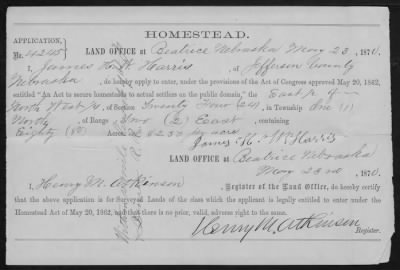 HOMESTEAD.
APPLICATION,
No. 4245
LAND OFFICE at Beatrice Nebraska May 23, 1870.
I, James H. W. Harris, of Jefferson County
Nebraska, do hereby apply to enter, under the provisions of the Act of Congress approved May 20, 1862,
entitled "An Act to secure homesteads to actual settlers on the public domain," the East ½ of
North West ¼, of Section Twenty Four (24), in Township One (1)
North, of Range Two (2) East, containing
Eighty (80) Acres. $2.50 per acre
James H. W. Harris
LAND OFFICE at Beatrice Nebraska
May 23rd, 1870.
I, Henry M. Atkinson, Register of the Land Office, do hereby certify
that the above application is for Surveyed Lands of the class which the applicant is legally entitled to enter under the
Homestead Act of May 20, 1862, and that there is no prior, valid, adverse right to the same.
Henry M. Atkinson
Register.